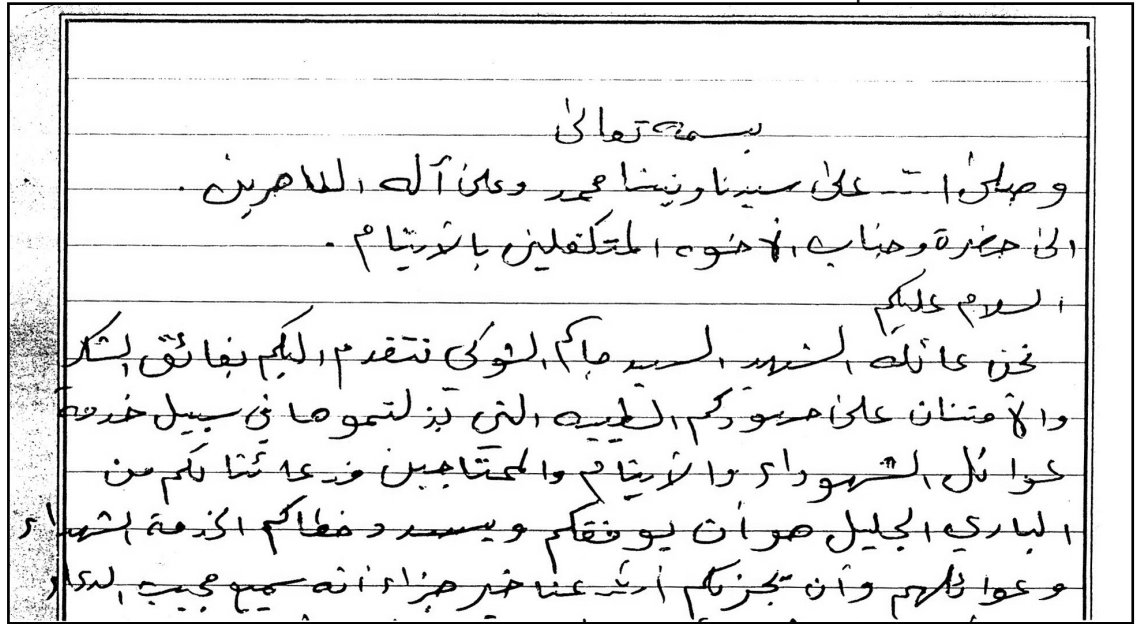 بسمه تعالى
وصلى الله على سيدنا ونبينا محمد وعلى آله الطاهرين .
الى حضرة وجناب الاخوه المتكفلين بالأيتام .
السلام عليكم
نحن عائلة الشهيد السيد جاكم الشوكي نتقدم اليكم بفائق الشكر
والأمتنان على جهودكم الطيبه التي بذلتموها في سبيل خدمة
عوائل الشهداء والأيتام والمحتاجين ودعائنا لكم من
الباري الجليل هو أن يوفقكم ويسدد خطاكم لخدمة الشهداء
وعوائلهم وأن يجزيكم الله عنا خير جزاء انه سميع مجيب الدعاء